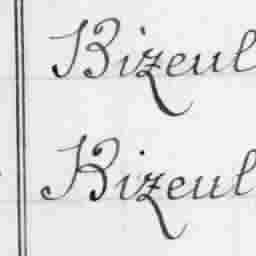 Bizeul
Bizeul